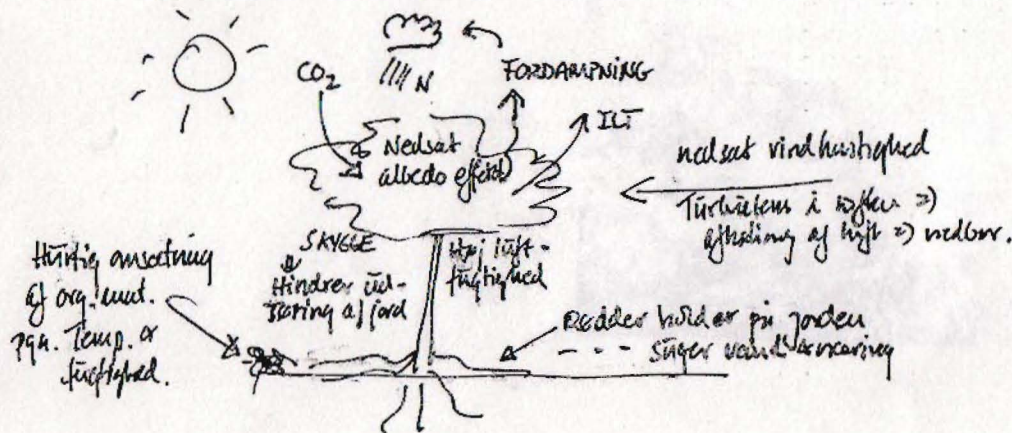 CO₂
N
FORDAMPNING
ILT
Nedsat
albedo effekt
nedsat vindhastighed
Turbulens i luften =>
afkøling af luft => nedbør.
SKYGGE
Hindrer ud-
tørring af jord
Høj luft-
fugtighed
Hurtig omsætning
af org. mat.
pga. Temp. &
fugtighed.
Rødder holder på jorden
- - - suger vand & næring